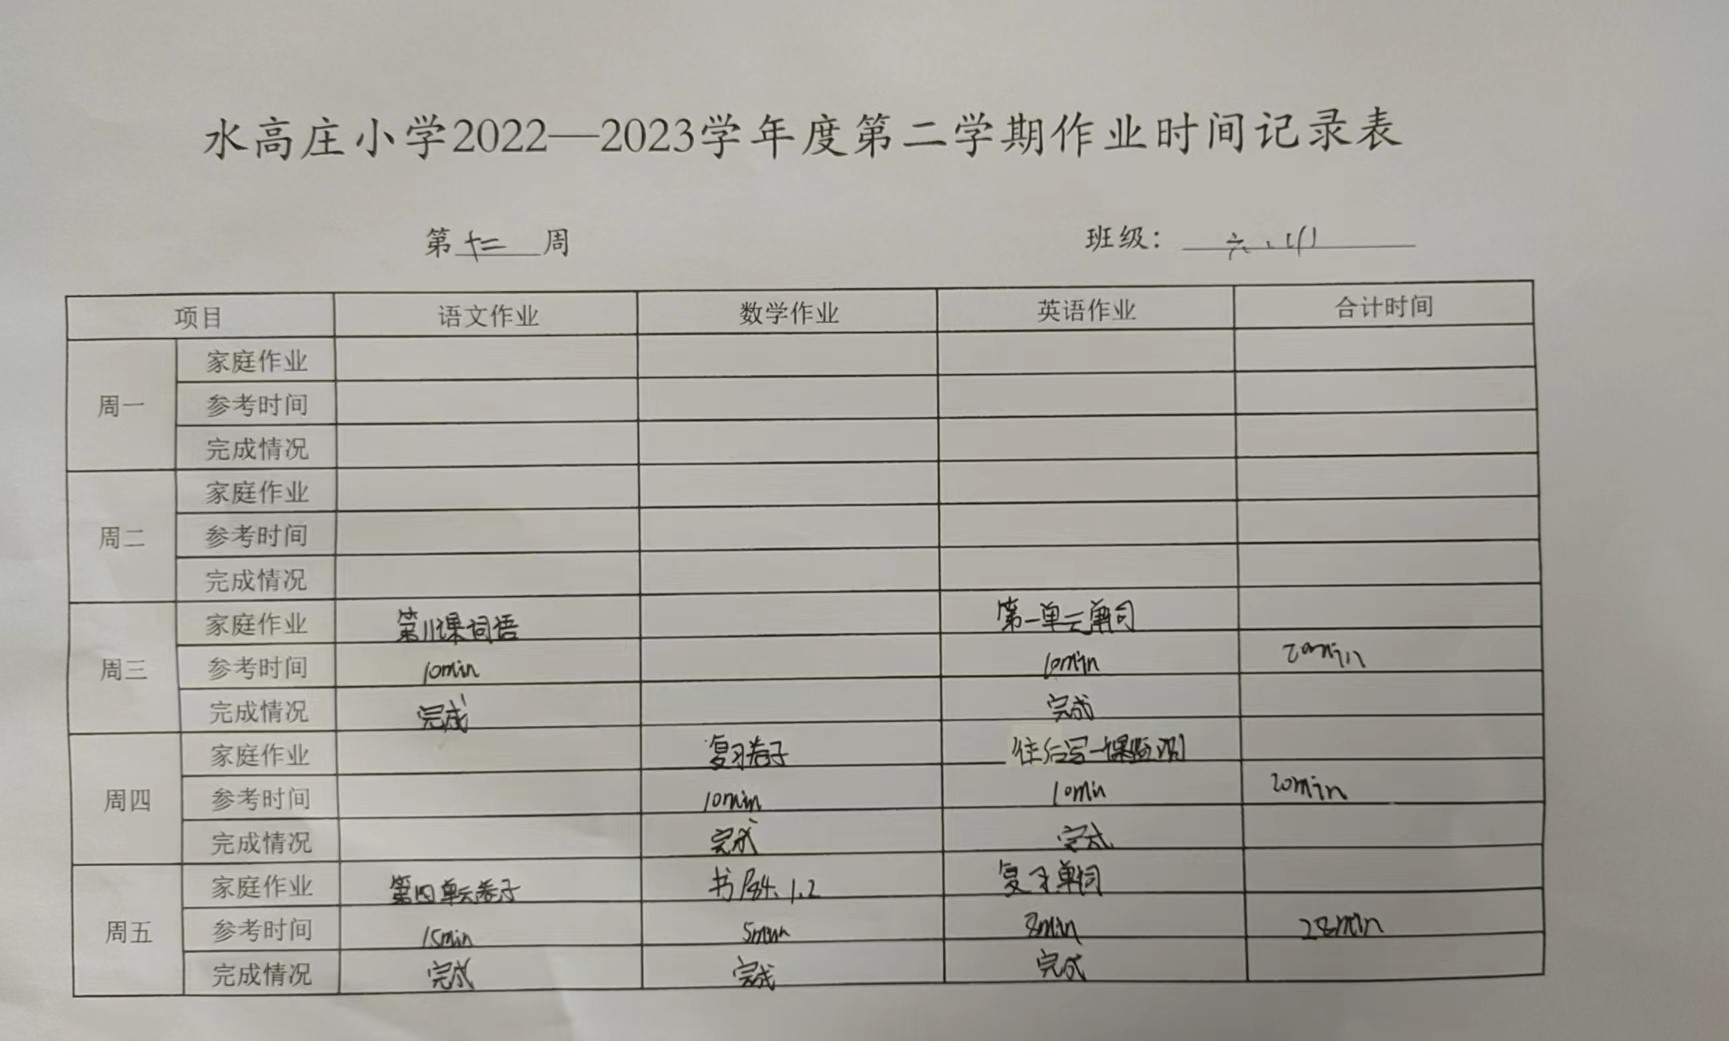 水高庄小学2022—2023学年度第二学期作业时间记录表
第十二周 班级：六.(1)
项目 语文作业 数学作业 英语作业 合计时间
周一 家庭作业
参考时间
完成情况
周二 家庭作业
参考时间
完成情况
周三 家庭作业 第11课词语 第一单元单词
参考时间 10min 10min 20min
完成情况 完成 完成
周四 家庭作业 复习卷子 往后写一课
参考时间 10min 10min 20min
完成情况 完成 完成
周五 家庭作业 第四单元卷子 书P84.1.2 复习单词
参考时间 15min 5min 8min 28min
完成情况 完成 完成 完成